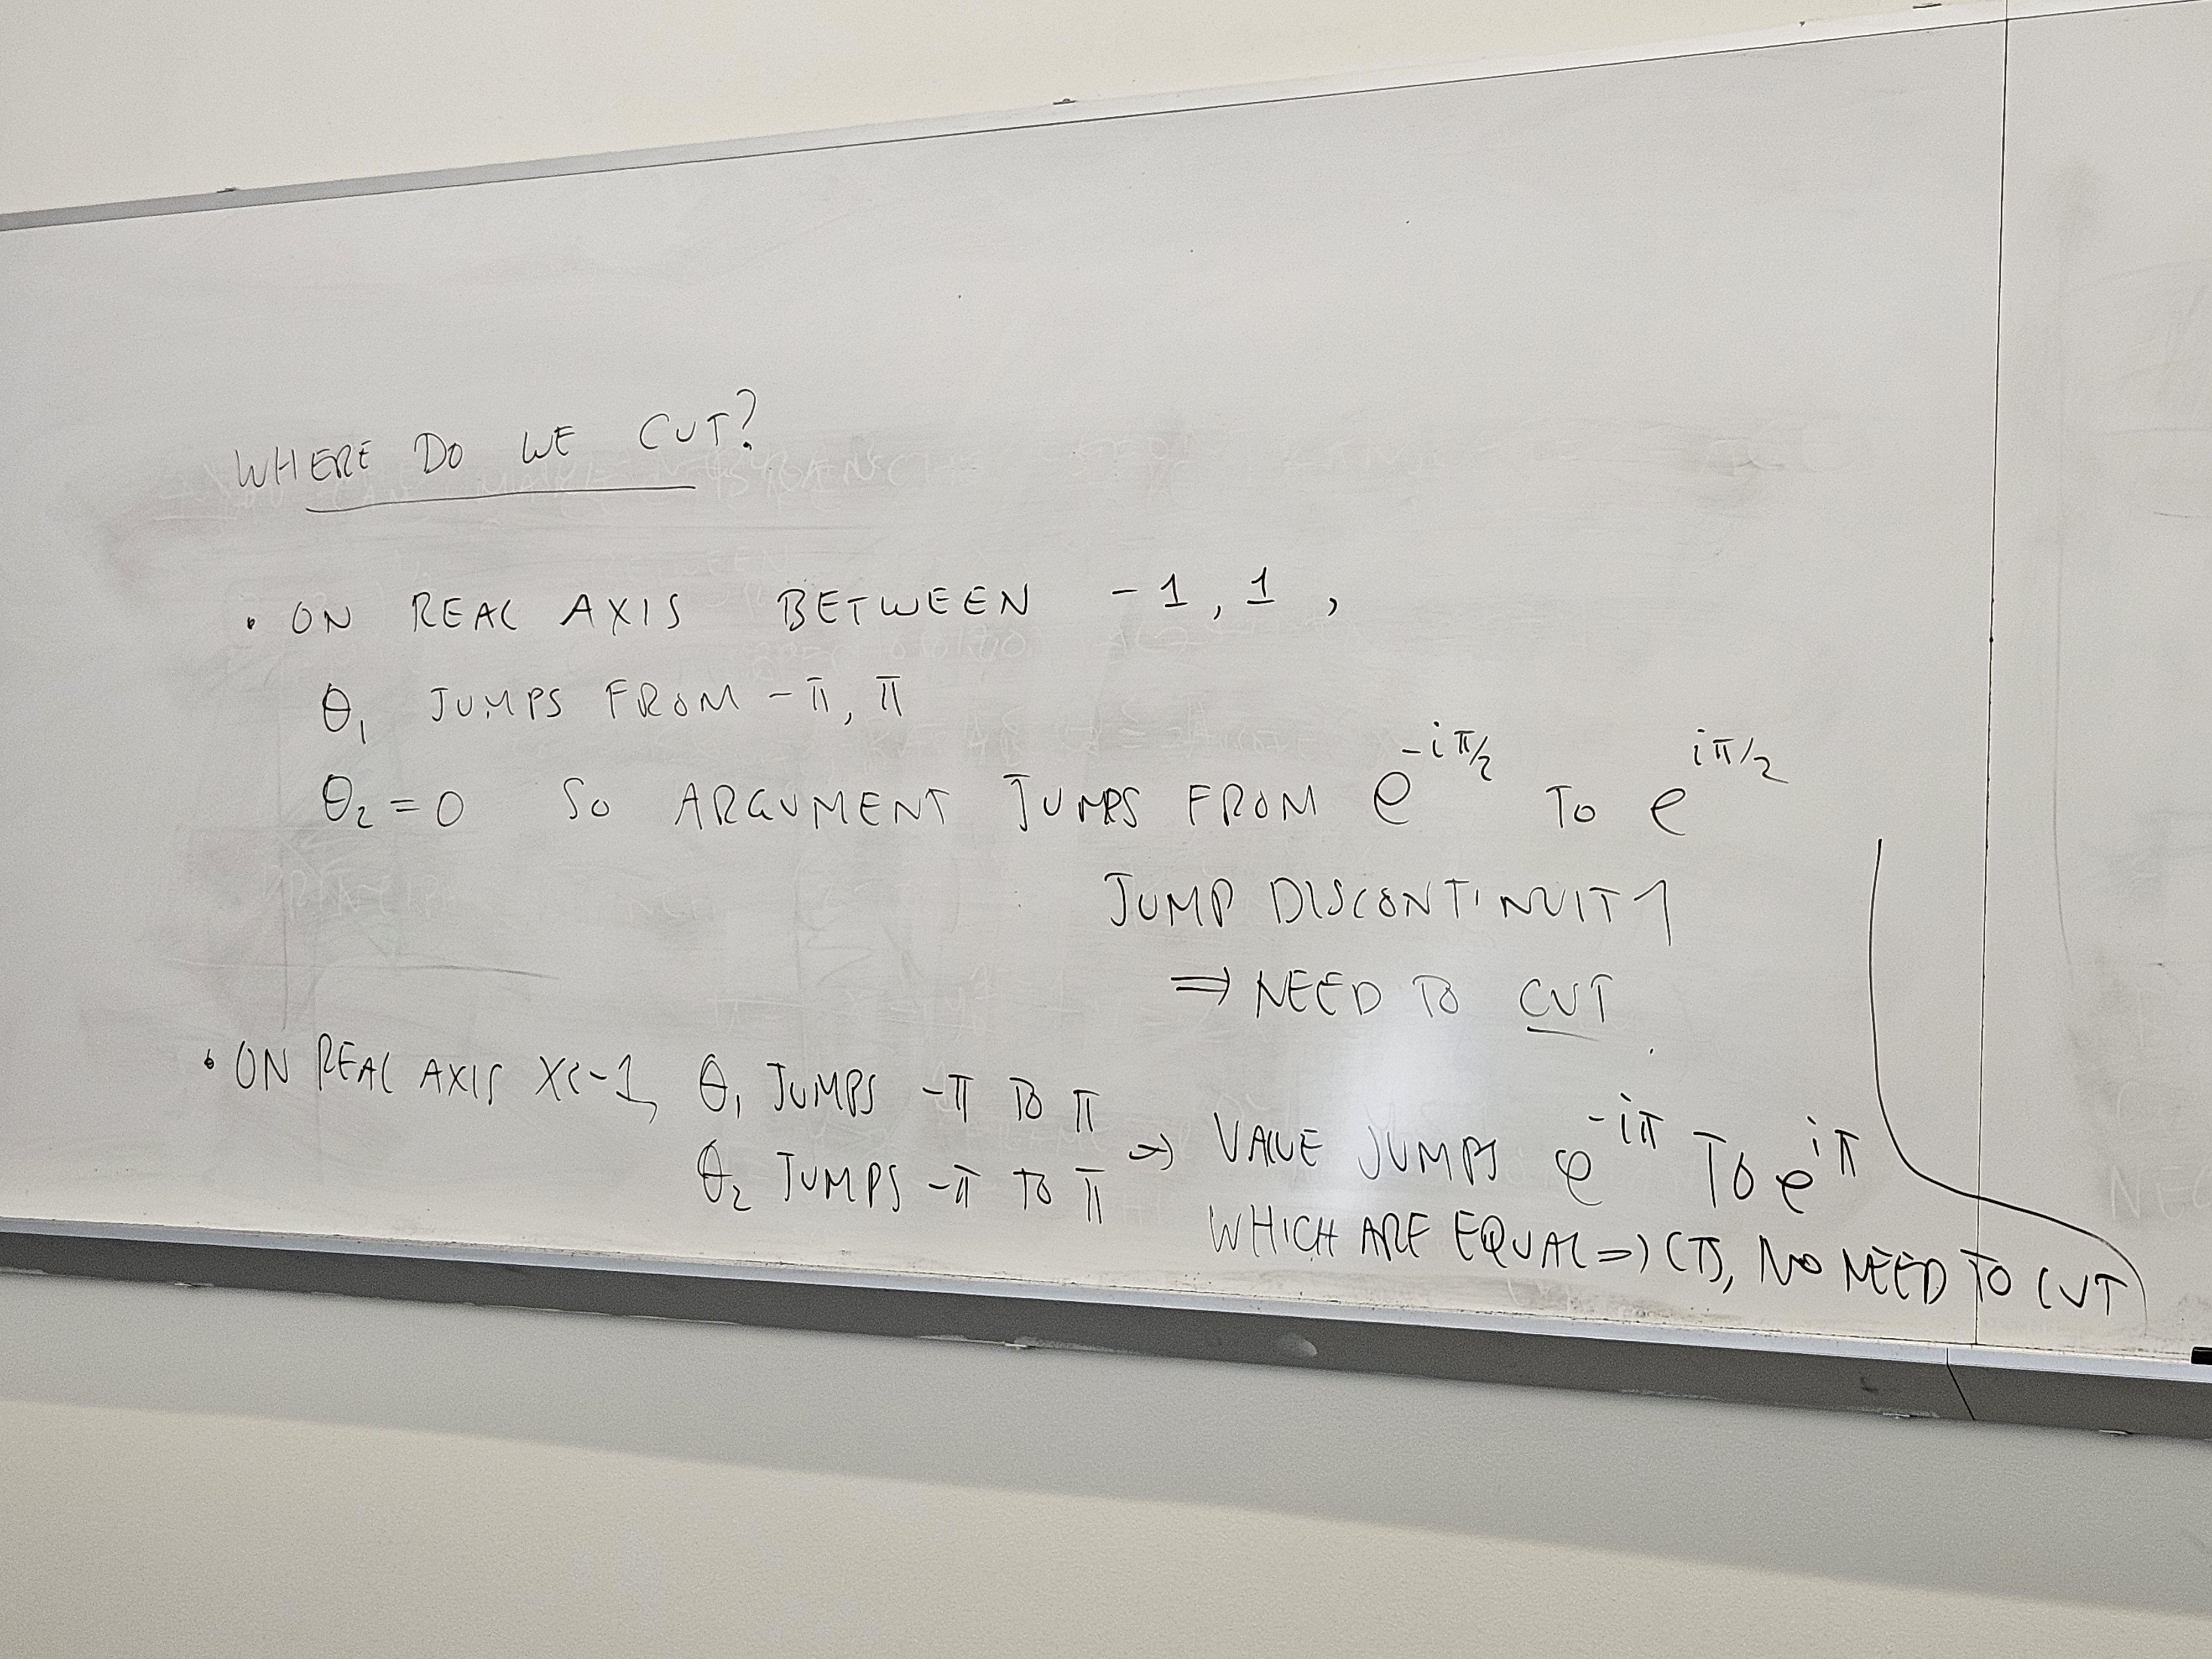 WHERE DO WE CUT?
• ON REAL AXIS BETWEEN -1, 1 ,
θ₁ JUMPS FROM -π, π
θ₂ = 0 SO ARGUMENT JUMPS FROM e^{-iπ/2} TO e^{iπ/2}
JUMP DISCONTINUITY
⇒ NEED TO CUT
• ON REAL AXIS X<-1, θ₁ JUMPS -π TO π
θ₂ JUMPS -π TO π ⇒ VALUE JUMPS e^{-iπ} TO e^{iπ}
WHICH ARE EQUAL ⇒ CTS, NO NEED TO CUT